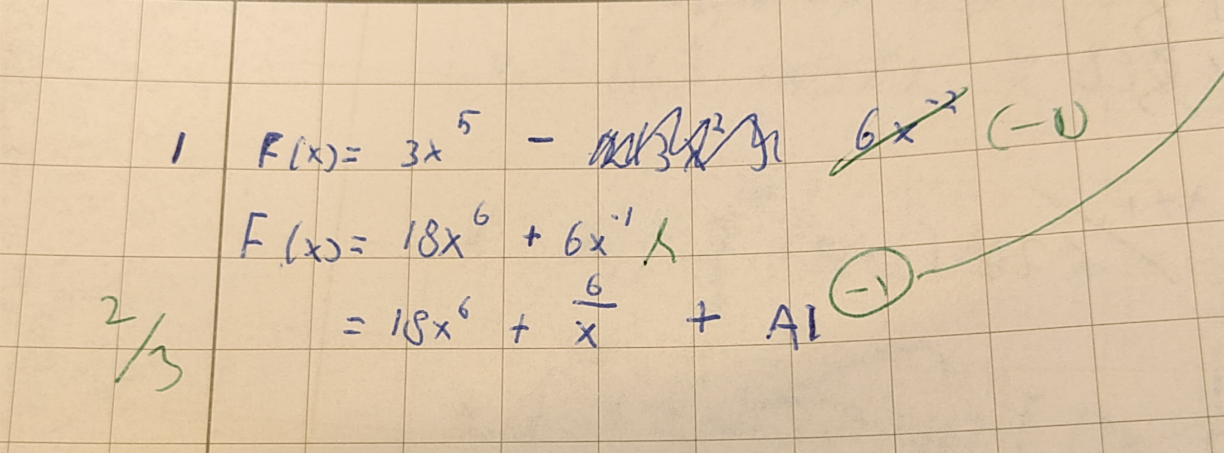 1 F(x) = 3x⁵ - 6x⁻² (-1)
F(x) = 18x⁶ + 6x⁻¹
= 18x⁶ + 6/x + A1 -1
2/3